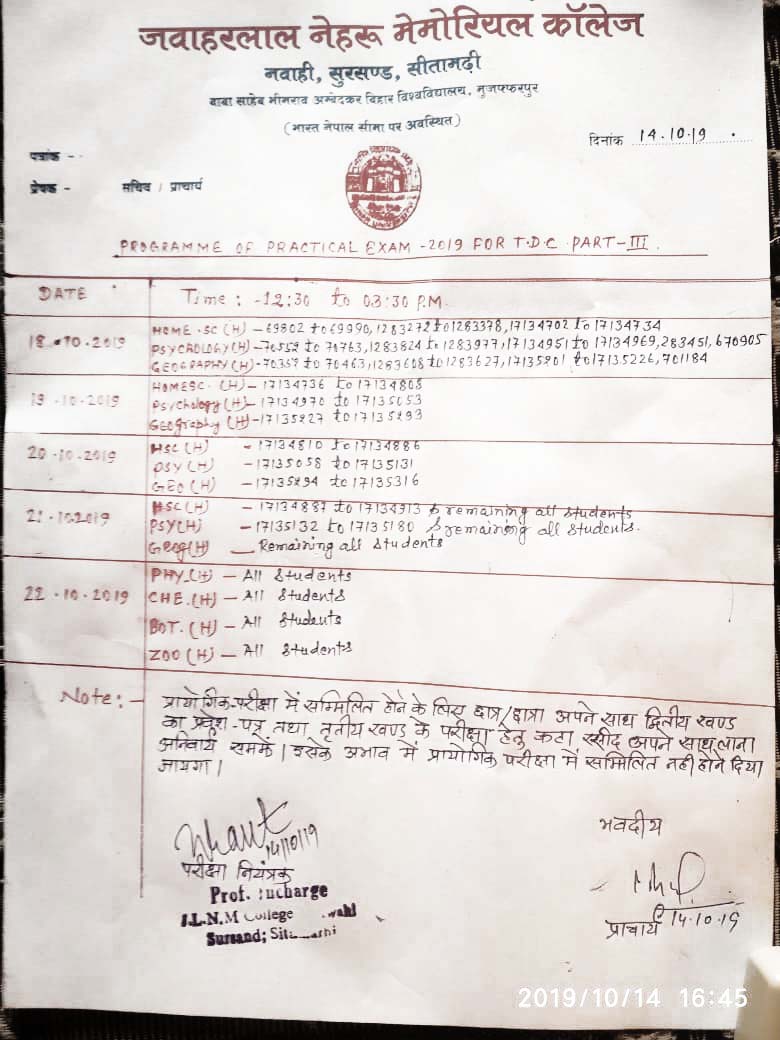 जवाहरलाल नेहरू मेमोरियल कॉलेज
नवाही, सुरसण्ड, सीतामढ़ी
बाबा साहेब भीमराव अम्बेदकर बिहार विश्वविद्यालय, मुजफ्फरपुर
(भारत नेपाल सीमा पर अवस्थित)
दिनांक 14.10.19
पत्रांक -
प्रेषक - सचिव / प्राचार्य
PROGRAMME OF PRACTICAL EXAM -2019 FOR T.D.C PART-III.
DATE Time : -12:30 to 03:30 P.M.
18.10.2019 HOME.SC (H) - 69802 to 69990, 1283272 to 1283378, 17134702 to 17134734
PSYCHOLOGY (H) -70559 to 70763, 1283824 to 1283977, 17134951 to 17134969, 283451, 670905
GEOGRAPHY (H) -70359 to 70463, 1283608 to 1283627, 17135201 to 17135226, 701184
19-10-2019 HOMESC. (H) - 17134736 to 17134808
Psychology (H) - 17134970 to 17135053
Geography (H) -17135227 to 17135293
20-10-2019 HSC (H) - 17134810 to 17134886
PSY (H) -17135058 to 17135131
GEO (H) -17135294 to 17135316
21-10.2019 HSC (H) - 17134887 to 17134913 & remaining all students
PSY(H) - 17135132 to 17135180 & remaining all students.
Geog(H) - Remaining all students
22-10-2019 PHY.(H) - All students
CHE.(H) - All students
BOT.(H) - All students
ZOO (H) - All students
Note:- प्रायोगिक-परीक्षा में सम्मिलित होने के लिए छात्र/छात्रा अपने साथ द्वितीय खण्ड
का प्रवेश-पत्र तथा तृतीय खण्ड के परीक्षा हेतु कटा रसीद अपने साथ लाना
अनिवार्य समझें। इसके अभाव में प्रायोगिक परीक्षा में सम्मिलित नहीं होने दिया
जायगा।
भवदीय
14/10/19
परीक्षा नियंत्रक
Prof. Incharge
J.L.N.M College
Sursand;
प्राचार्य 14.10.19
2019/10/14 16:45